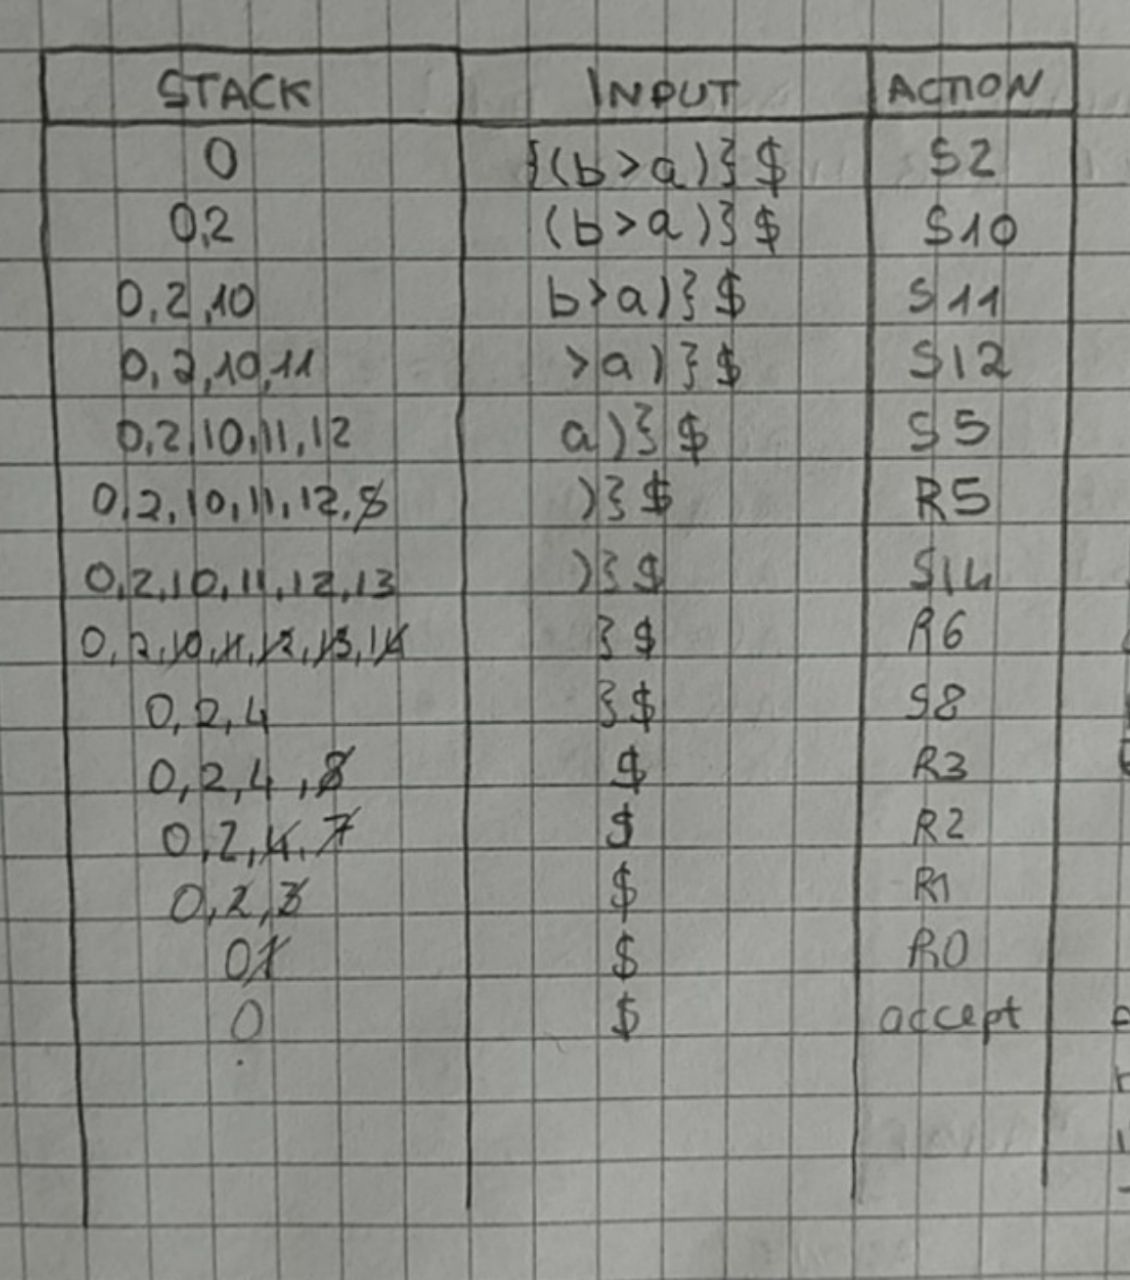 STACK INPUT ACTION
0 {(b>a)}$ S2
0,2 (b>a)}$ S10
0,2,10 b>a)}$ S11
0,2,10,11 >a)}$ S12
0,2,10,11,12 a)}$ S5
0,2,10,11,12,5 )}$ R5
0,2,10,11,12,13 )}$ S14
0,2,10,11,12,13,14 }$ R6
0,2,4 }$ S8
0,2,4,8 $ R3
0,2,4,7 $ R2
0,2,3 $ R1
01 $ R0
0 $ accept